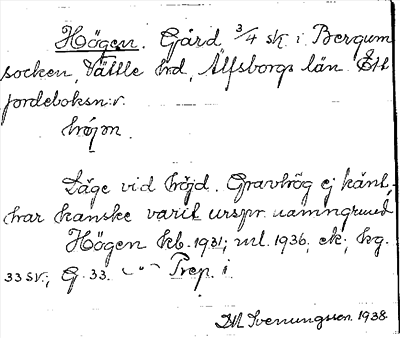 Högen. Gård 3/4 sk. i Bergum
socken, Vättle hd, Älfsborgs län. Ett
jordeboksn:r.
hö̀jǝn.
Läge vid höjd. Gravhög ej känt,
har kanske varit urspr. namngrund
Högen kb. 1931; ml. 1936, ek; hg.
33 sv.; G. 33. –"– Prep. i.
Svenungsson. 1938